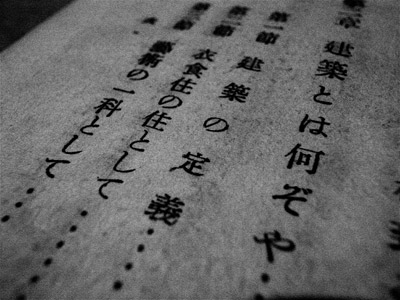 章 建築とは何ぞや
第一節 建築の定義
第二節 衣食住の住として
節 藝術の一科として